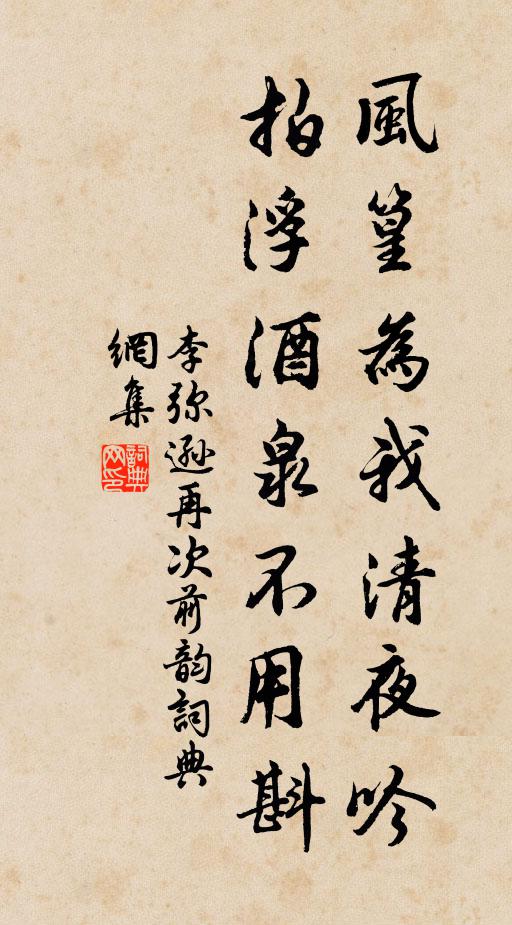 風篁為我清夜吟
拍浮酒泉不用斟
李弥遜再次前韵詞典
網集
詞典网印